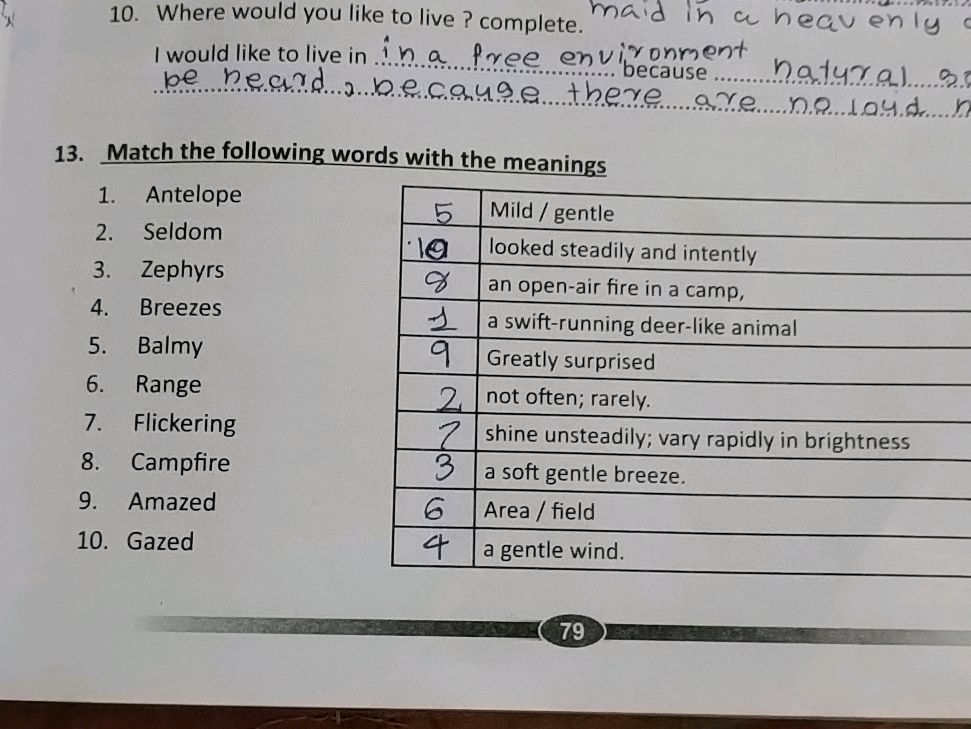 10. Where would you like to live ? complete. maid in a heavenly
I would like to live in in a free environment because natural
be heard, because there are no loud
13. Match the following words with the meanings
1. Antelope
2. Seldom
3. Zephyrs
4. Breezes
5. Balmy
6. Range
7. Flickering
8. Campfire
9. Amazed
10. Gazed
5 Mild / gentle
10 looked steadily and intently
8 an open-air fire in a camp,
1 a swift-running deer-like animal
9 Greatly surprised
2 not often; rarely.
7 shine unsteadily; vary rapidly in brightness
3 a soft gentle breeze.
6 Area / field
4 a gentle wind.
79